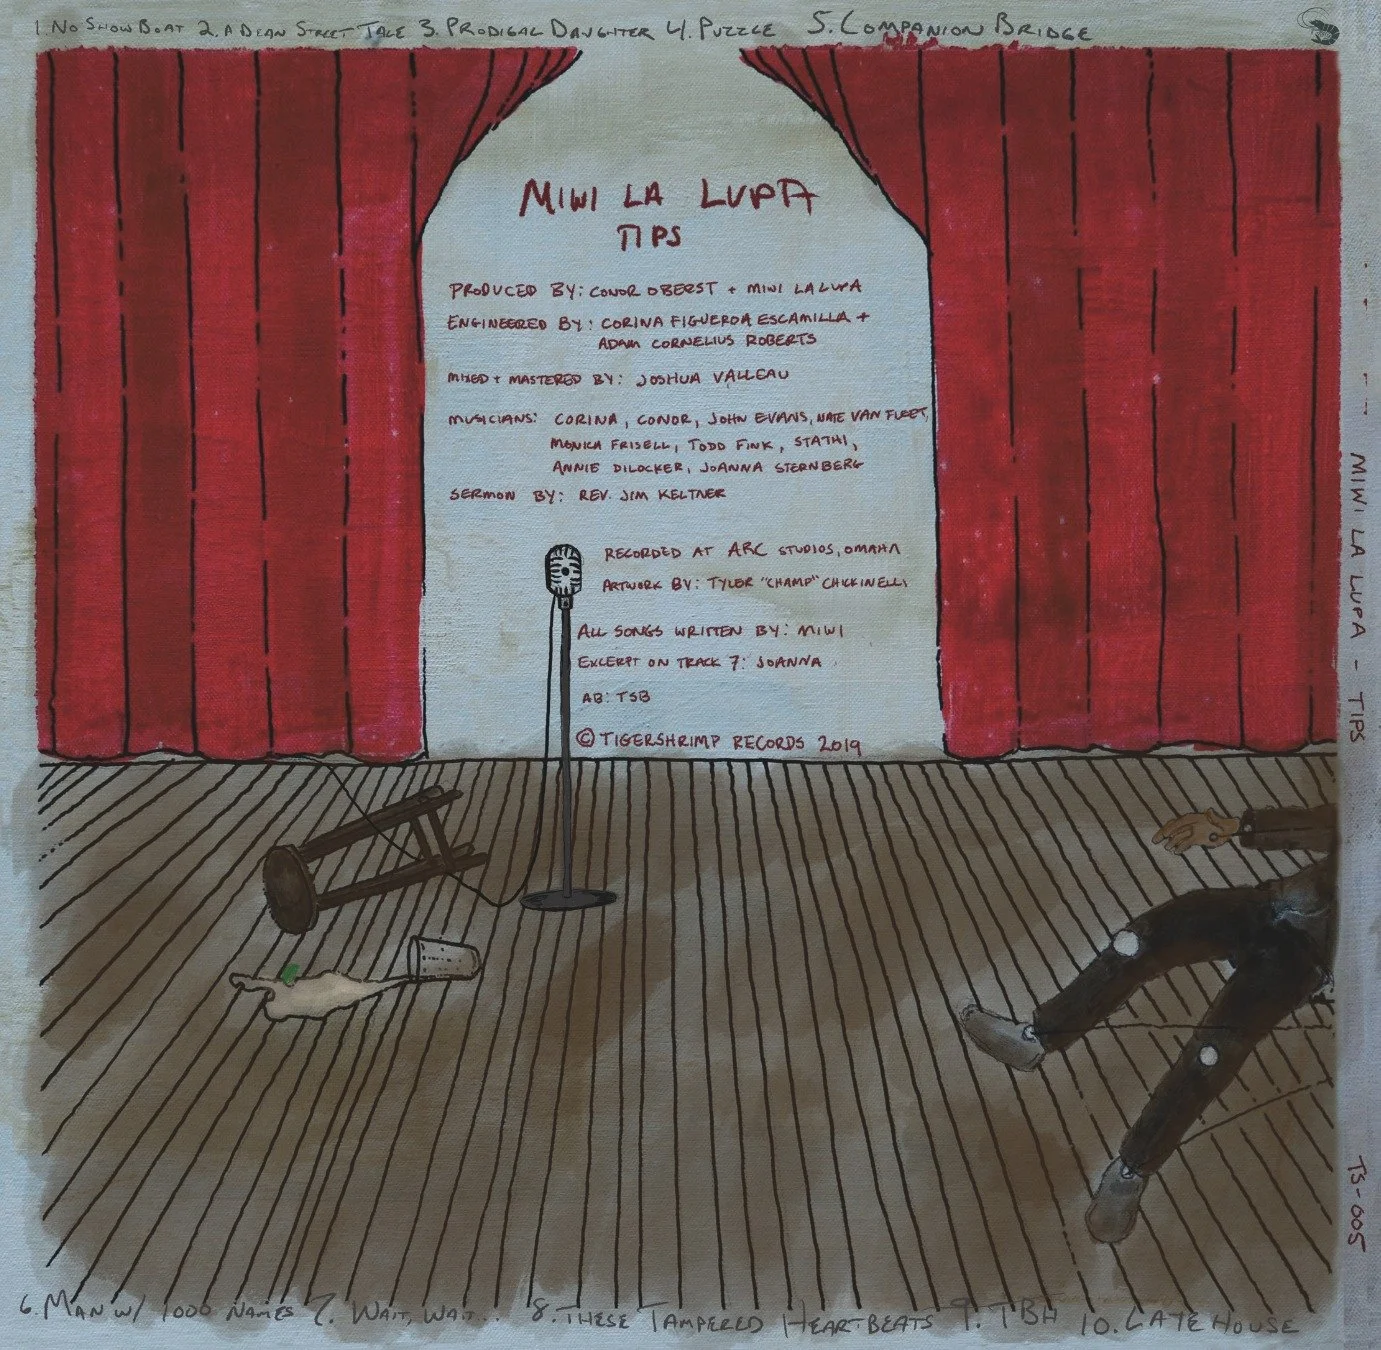 1. No Show Boat 2. A Dean Street Tale 3. Prodigal Daughter 4. Puzzle 5. Companion Bridge
MIWI LA LUPA
TIPS
PRODUCED BY: CONOR OBERST + MIWI LA LUPA
ENGINEERED BY: CORINA FIGUEROA ESCAMILLA +
ADAM CORNELIUS ROBERTS
MIXED + MASTERED BY: JOSHUA VALLEAU
MUSICIANS: CORINA, CONOR, JOHN EVANS, NATE VAN FLEET,
MONICA FRISELL, TODD FINK, STATHI,
ANNIE DILOCKER, JOANNA STERNBERG
SERMON BY: REV. JIM KELTNER
RECORDED AT ARC STUDIOS, OMAHA
ARTWORK BY: TYLER "CHAMP" CHICKINELLI
ALL SONGS WRITTEN BY: MIWI
EXCERPT ON TRACK 7: JOANNA
AB: TSB
© TIGERSHRIMP RECORDS 2019
6. Man w/ 1000 Names 7. Wait, Wait... 8. These Tampered Heartbeats 9. TBH 10. Late House
MIWI LA LUPA - TIPS
TS-005